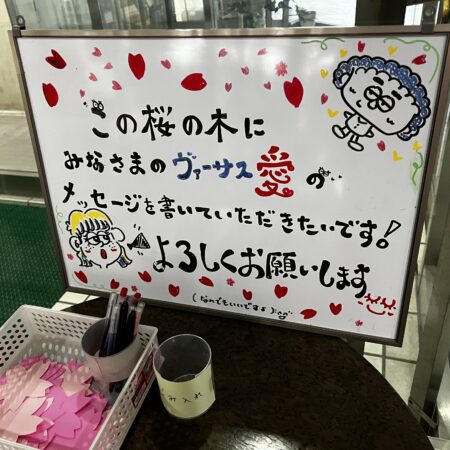 この桜の木に
みなさまのヴァーサス愛の
メッセージを書いていただきたいです!
よろしくお願いします
(なんでもいいですよ)
ごみ入れ